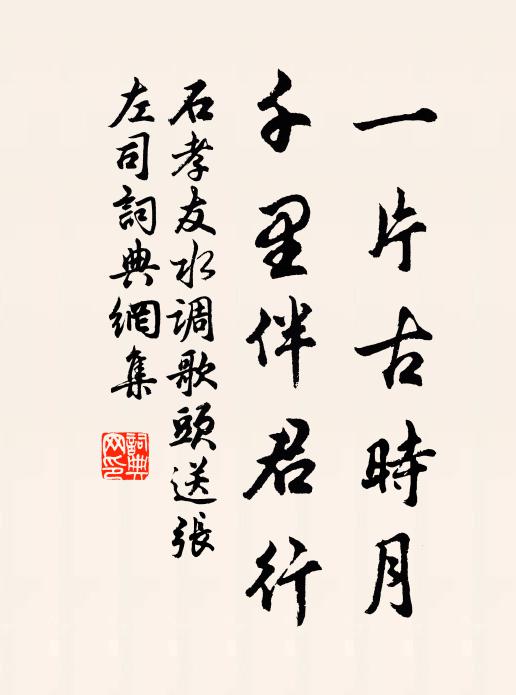 一片古時月
千里伴君行
石孝友水调歌頭送張
左司詞典網集
詞典
网印